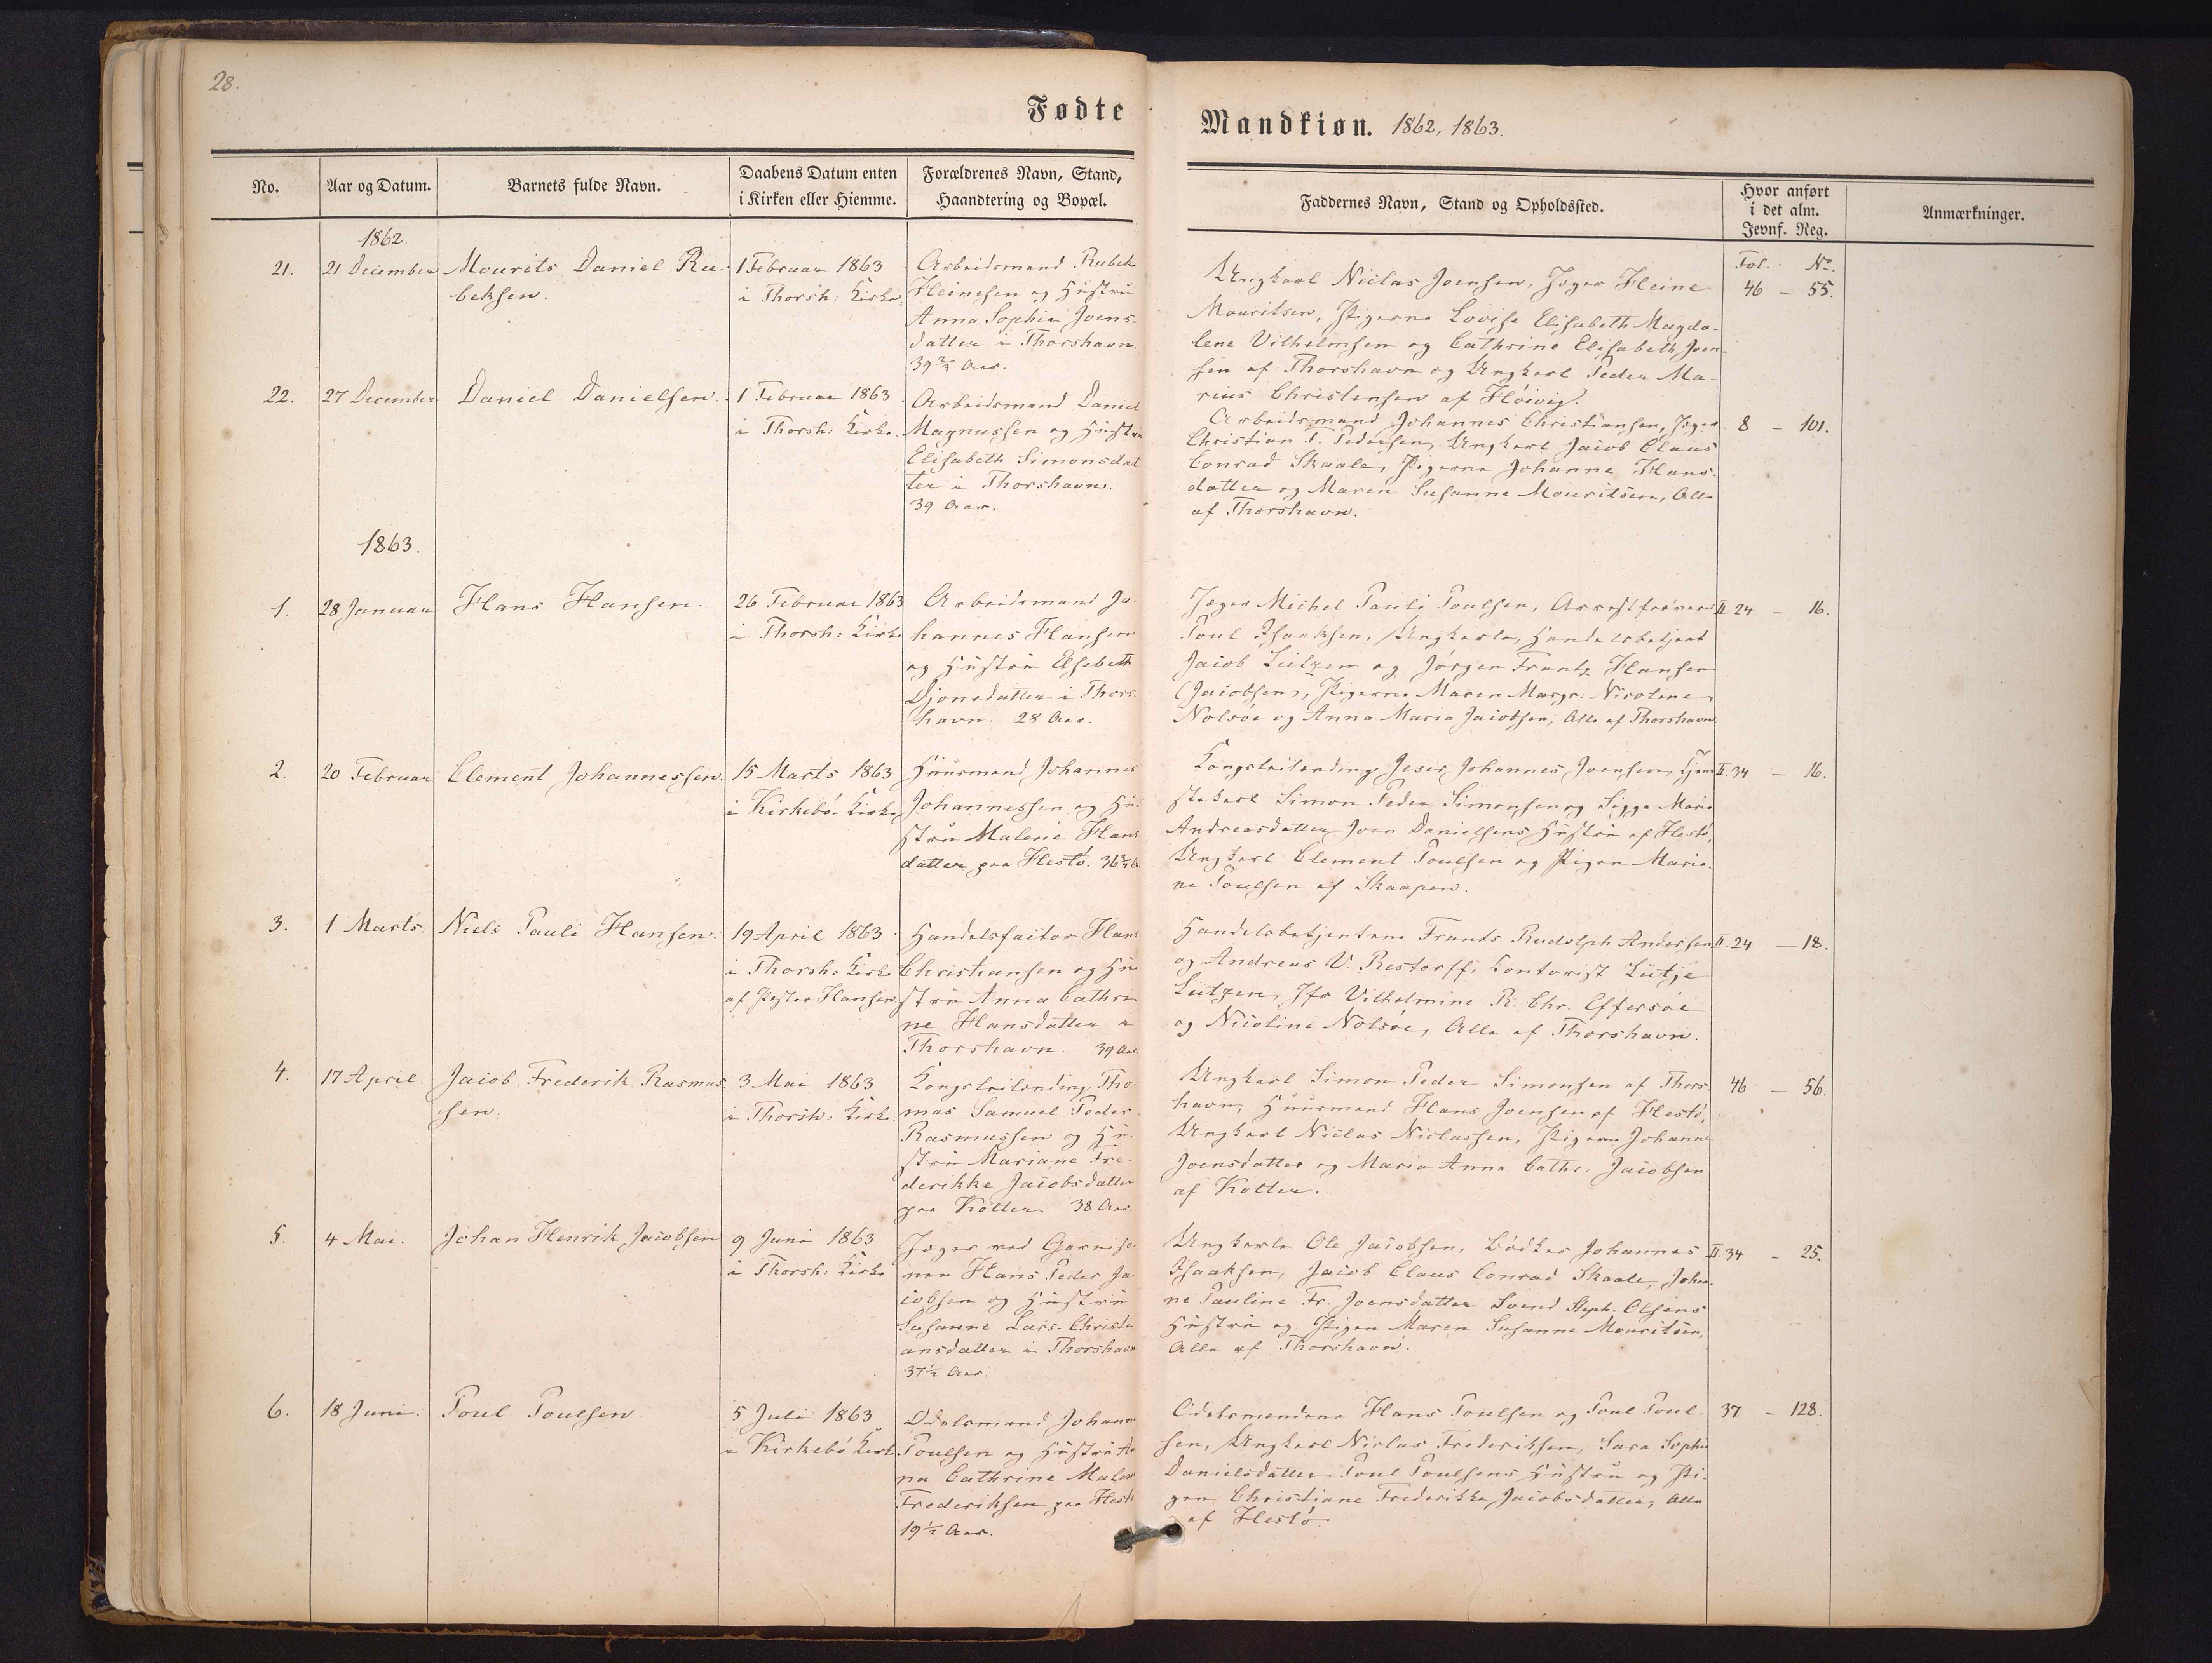 28.
Fødte
Mandkiøn. 1862, 1863.
No.
Aar og Datum.
Barnets fulde Navn.
Daabens Datum enten
i Kirken eller Hiemme.
Forældrenes Navn, Stand,
Haandtering og Bopæl.
Faddernes Navn, Stand og Opholdssted.
Hvor anført
i det alm.
Jevnf. Reg.
Anmærkninger.
1862.
21.
21 December
Mourits Daniel Ru-
beksen.
1 Februar 1863
i Thorsh: Kirke
Arbeidsmand Rubek
Heinesen og Hustru
Anna Sophie Joens-
datter i Thorshavn.
39 3/4 Aar.
Ungkarl Niclas Joensen, Jæger Heine
Mouritsen, Pigerne Lovise Elisabeth Magda-
lene Vilhelmsen og Cathrine Elisabeth Joen-
sen af Thorshavn og Ungkarl Peder Ma-
rius Christensen af Höivig.
Fol. No.
46 - 55.
22.
27 December
Daniel Danielsen.
1 Februar 1863
i Thorsh: Kirke.
Arbeidsmand Daniel
Magnussen og Hustru
Elisabeth Simonsdat
ter i Thorshavn.
39 Aar.
Arbeidsmand Johannes Christiansen, Jæger
Christian F. Pedersen, Ungkarl Jacob Claus
Conrad Skaale, Pigerne Johanne Hans-
datter og Maren Susanne Mouritsen, Alle
af Thorshavn.
8 - 101.
1863.
1.
28 Januar
Hans Hansen.
26 Februar 1863
i Thorsh: Kirke
Arbeidsmand Jo-
hannes Hansen
og Hustru Elsebeth
Djonedatter i Thors-
havn. 28 Aar.
Jæger Michel Pauli Poulsen, Arrestforvarer
Poul Isaaksen, Ungkarle, Handelsbetjent
Jacob Lützen og Jörgen Frantz Hansen
(Jacobsen), Pigerne Maren Margr: Nicoline
Nolsöe og Anna Maria Jacobsen, Alle af Thorshavn
II 24 - 16.
2.
20 Februar
Clement Johannessen.
15 Marts 1863
i Kirkebö Kirke
Huusmand Johannes
Johannessen og Hu-
stru Malene Hans
datter paa Hestö. 36 3/4 A
Kongsleilænding Johannes Joensen, Tjene
stekarl Simon Peder Simonsen og Sigga Maria
Andreasdatter Joen Danielsens Hustru af Hestö,
Ungkarl Clement Poulsen og Pigen Maria-
ne Poulsen af Skaapen.
II. 34 - 16.
3.
1 Marts.
Niels Pauli Hansen.
19 April 1863
i Thorsh: Kirke
af Pastor Hansen
Handelsfactor Hans
Christiansen og Hu-
stru Anna Cathri
ne Hansdatter i
Thorshavn. 39 Aar
Handelsbetjentene Frants Rudolph Andersen
og Andreas V. Restorff, Kontorist Lütje
Lützen, Jfr Vilhelmine R. Chr. Effersöe
og Nicoline Nolsöe, Alle af Thorshavn.
II. 24 - 18.
4.
17 April.
Jacob Frederik Rasmus
sen.
3 Mai 1863
i Thorsh: Kirke.
Kongsleilænding Tho-
mas Samuel Peder
Rasmussen og Hu-
stru Mariane Fre-
derikke Jacobsdatter
paa Kolter. 38 Aar.
Ungkarl Simon Peder Simonsen af Thors-
havn, Huusmand Hans Joensen af Hestö,
Ungkarl Niclas Niclassen, Pigerne Johanne
Joensdatter og Maria Anna Cathr. Jacobsen
af Kolter.
46 - 56.
5.
4 Mai.
Johan Henrik Jacobsen
9 Juni 1863
i Thorsh: Kirke
Jæger ved Garniso-
nen Hans Peder Ja-
cobsen og Hustru
Susanne Lars-Christi
ansdatter i Thorshavn
37 1/2 Aar.
Ungkarle Ole Jacobsen, Bödker Johannes
Isaaksen, Jacob Claus Conrad Skaale, Johan-
ne Pauline Fr. Joensdatter Svend Steph. Olsens
Hustru og Pigen Maren Susanne Mouritsen,
Alle af Thorshavn.
II. 34 - 25.
6.
18 Juni.
Poul Poulsen.
5 Juli 1863
i Kirkebö Kirke
Odelsmand Johann
Poulsen og Hustru An
na Cathrine Malene
Frederiksen paa Hestö
19 1/2 Aar.
Odelsmændene Hans Poulsen og Poul Poul-
sen, Ungkarl Niclas Frederiksen, Sara Sophie
Danielsdatter Poul Poulsens Hustru og Pi-
gen Christiane Frederikke Jacobsdatter, Alle
af Hestö.
37 - 128.